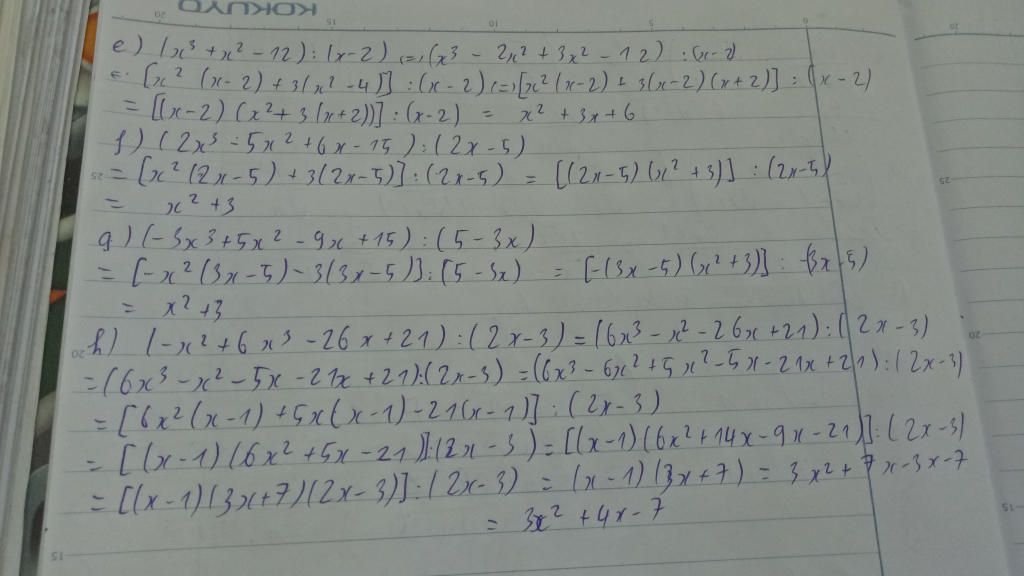 KOKUYO
20 15 10 5 0 20
e) (x³ + x² - 12) : (x - 2) (=) (x³ - 2x² + 3x² - 12) : (x - 2)
= [x² (x - 2) + 3(x² - 4)] : (x - 2) (=) [x² (x - 2) + 3(x - 2)(x + 2)] : (x - 2)
= [(x - 2) (x² + 3 (x + 2))] : (x - 2) = x² + 3x + 6
f) (2x³ - 5x² + 6x - 15) : (2x - 5)
25 = [x² (2x - 5) + 3(2x - 5)] : (2x - 5) = [(2x - 5) (x² + 3)] : (2x - 5) 25
= x² + 3
g) (-3x³ + 5x² - 9x + 15) : (5 - 3x)
= [-x² (3x - 5) - 3(3x - 5)] : (5 - 3x) = [-(3x - 5) (x² + 3)] : -(3x - 5)
= x² + 3
20 h) (-x² + 6x³ - 26x + 21) : (2x - 3) = (6x³ - x² - 26x + 21) : (2x - 3) 20
= (6x³ - x² - 5x - 21x + 21) : (2x - 3) = (6x³ - 6x² + 5x² - 5x - 21x + 21) : (2x - 3)
= [6x² (x - 1) + 5x(x - 1) - 21(x - 1)] : (2x - 3)
= [(x - 1) (6x² + 5x - 21)] : (2x - 3) = [(x - 1)(6x² + 14x - 9x - 21)] : (2x - 3)
= [(x - 1)(3x + 7)(2x - 3)] : (2x - 3) = (x - 1) (3x + 7) = 3x² + 7x - 3x - 7
= 3x² + 4x - 7
15 15